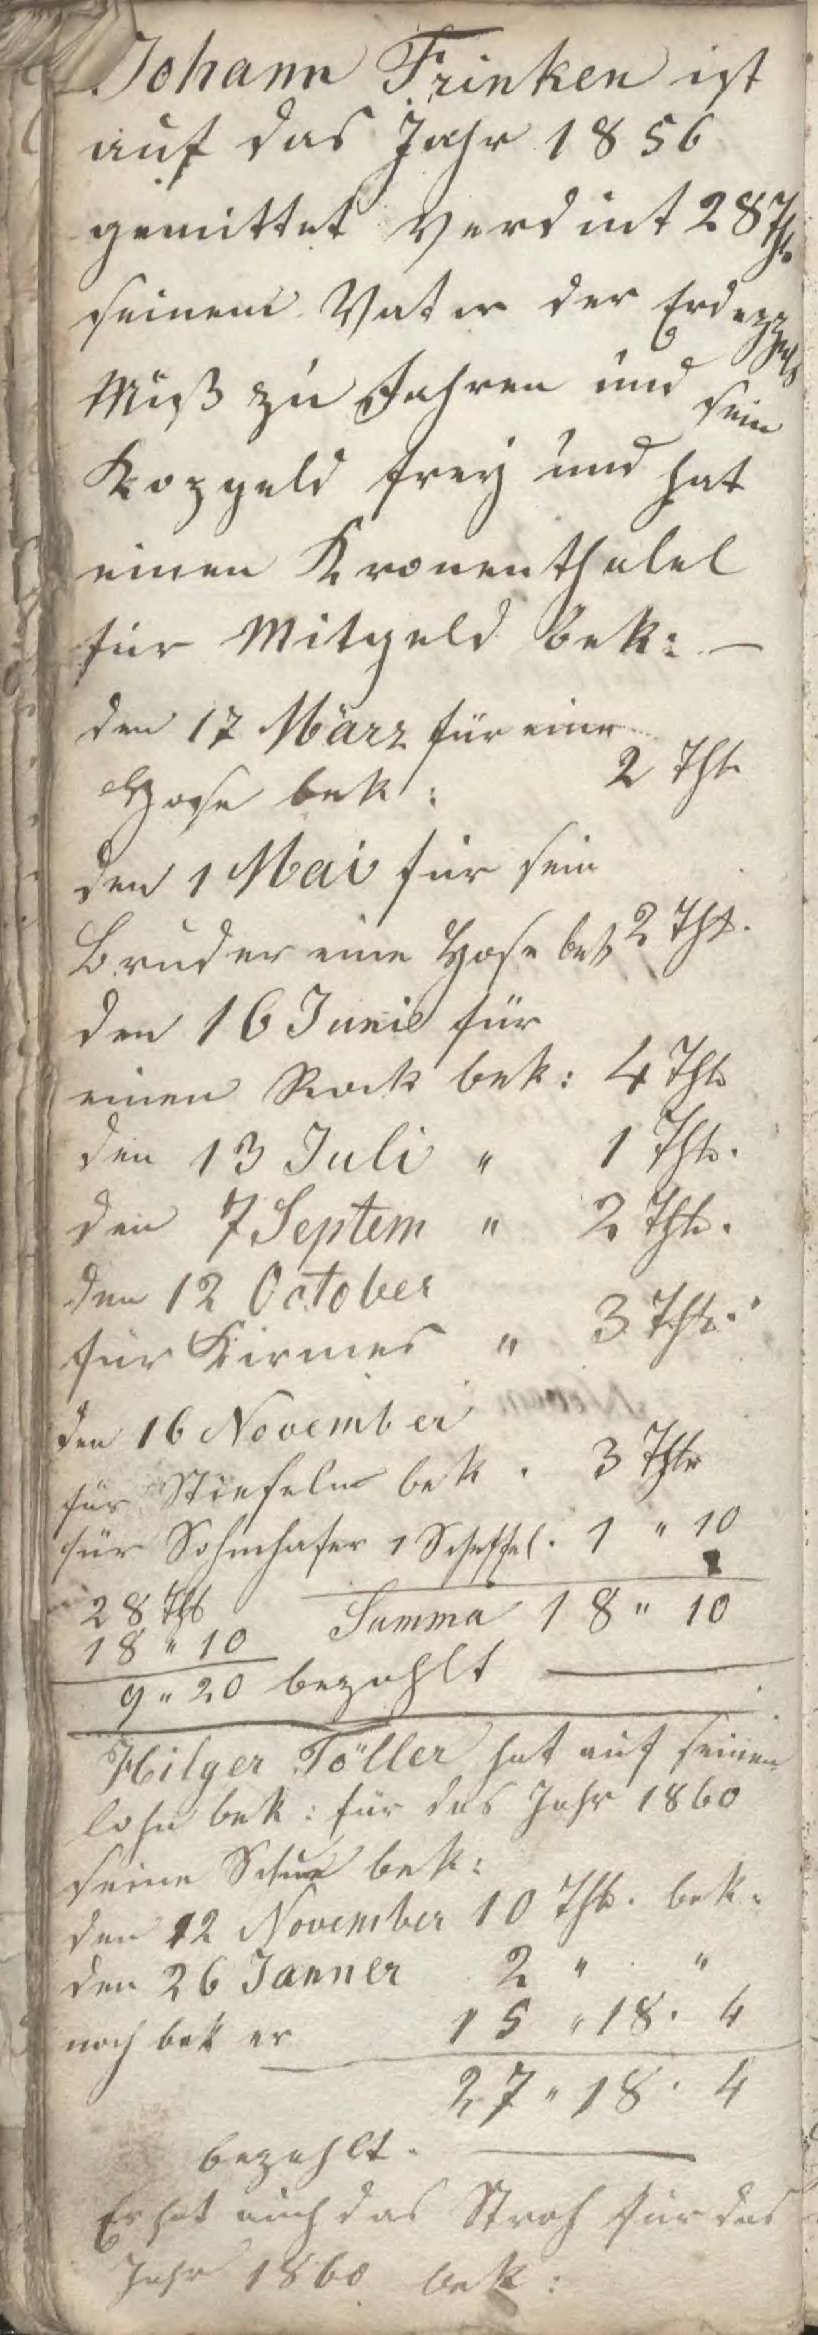 Johann Frinken ist
auf das Jahr 1856
gemittet verdint 28 Thlr
seinem Vater der
Muß zu Fahren und sein
Kopgeld frey und hat
einen Kronenthalel
für Mitgeld bek: —
den 17 März für eine
Hose bek: 2 Thlr
den 1 Mai für sein
Bruder eine Hose bek 2 Thlr.
den 16 Junie für
einen Rock bek: 4 Thlr
den 13 Juli " 1 Thlr.
den 7 Septem " 2 Thlr.
den 12 October
für Kirmes " 3 Thlr.
den 16 November
für Stiefeln bek. 3 Thlr
für 1 Scheffel. 1 " 10
28 Thlr Summa 18 " 10
18 " 10
9 " 20 bezahlt —
Hilger Töller hat auf seinen
lohn bek: für das Jahr 1860
seine Schue bek:
den 12 November 10 Thlr. bek:
den 26 Janner 2 " "
noch bek er 15 " 18. 4
27 " 18. 4
bezahlt. —
Er hat auch das Stroh für das
Jahr 1860 bek: